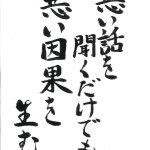 悪い話を
聞くだけでも
悪い因果を
生む